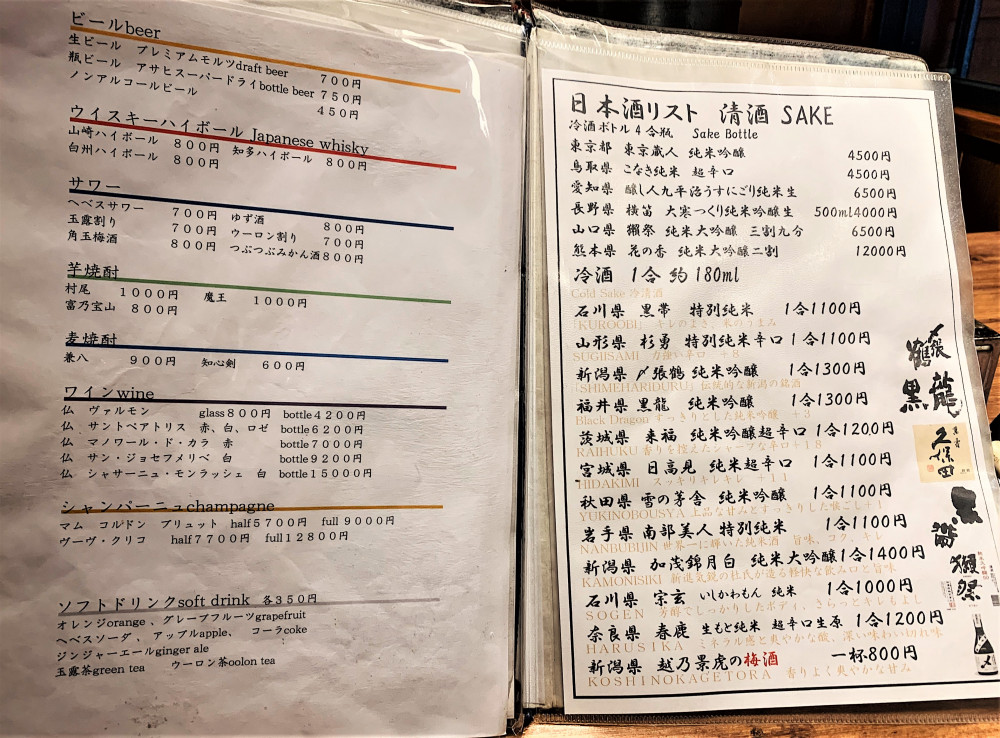 ビールbeer
生ビール　プレミアムモルツdraft beer　700円
瓶ビール　アサヒスーパードライbottle beer 750円
ノンアルコールビール　450円
ウイスキーハイボール Japanese whisky
山崎ハイボール　800円　知多ハイボール　800円
白州ハイボール　800円
サワー
ヘベスサワー　700円　ゆず酒　800円
玉露割り　700円　ウーロン割り　700円
角玉梅酒　800円　つぶつぶみかん酒800円
芋焼酎
村尾　1000円　魔王　1000円
富乃宝山　800円
麦焼酎
兼八　900円　知心剣　600円
ワインwine
仏　ヴァルモン　glass800円　bottle4200円
仏　サントベアトリス　赤、白、ロゼ　bottle6200円
仏　マノワール・ド・カラ　赤　bottle7000円
仏　サン・ジョセフメリベ　白　bottle9200円
仏　シャサーニュ・モンラッシェ　白　bottle15000円
シャンパーニュchampagne
マム　コルドン　ブリュット　half5700円　full 9000円
ヴーヴ・クリコ　half7700円　full12800円
ソフトドリンクsoft drink　各350円
オレンジorange 、グレープフルーツgrapefruit
ヘベスソーダ 、アップルapple、　コーラcoke
ジンジャーエールginger ale
玉露茶green tea　ウーロン茶oolon tea
日本酒リスト　清酒 SAKE
冷酒ボトル4合瓶　Sake Bottle
東京都　東京蔵人　純米吟醸　4500円
鳥取県　こなき純米　超辛口　4500円
愛知県　醸し人九平治うすにごり純米生　6500円
長野県　横笛　大寒つくり純米吟醸生　500ml4000円
山口県　獺祭　純米大吟醸　三割九分　6500円
熊本県　花の香　純米大吟醸二割　12000円
冷酒　1合 約180ml
Cold Sake 冷清酒
石川県　黒帯　特別純米　1合1100円
「KUROOBI」　キレのよさ、米のうまみ
山形県　杉勇　特別純米辛口 1合1100円
SUGIISAMI　力強い辛口　+8
新潟県　〆張鶴　純米吟醸　1合1300円
「SHIMEHARIDURU」伝統的な新潟の銘酒
福井県　黒龍　純米吟醸　1合1300円
Black Dragon すっきりとした純米吟醸　+3
茨城県　来福　純米吟醸超辛口 1合1200円
RAIHUKU 香りを控えたシャープな辛口+18
宮城県　日高見　純米超辛口　1合1100円
HIDAKIMI　スッキリキレキレ　+11
秋田県　雪の茅舎　純米吟醸　1合1100円
YUKINOBOUSYA 上品な甘みとすっきりした喉ごし+1
岩手県　南部美人　特別純米　1合1100円
NANBUBIJIN 世界一に輝いた純米酒　旨味、コク、キレ
新潟県　加茂錦月白　純米大吟醸1合1400円
KAMONISIKI 新進気鋭の杜氏が造る軽快な飲み口と旨味
石川県　宗玄　いしかわもん　純米　1合1000円
SOGEN　芳醇でしっかりしたボディ、さらっとキレもよし
奈良県　春鹿　生もと純米　超辛口生原　1合1200円
HARUSIKA　ミネラル感と爽やかな酸、深い味わい切れ味
新潟県　越乃景虎の梅酒　一杯800円
KOSHINOKAGETORA　香りよく爽やかな甘み
〆張鶴
黒龍
久保田
獺祭